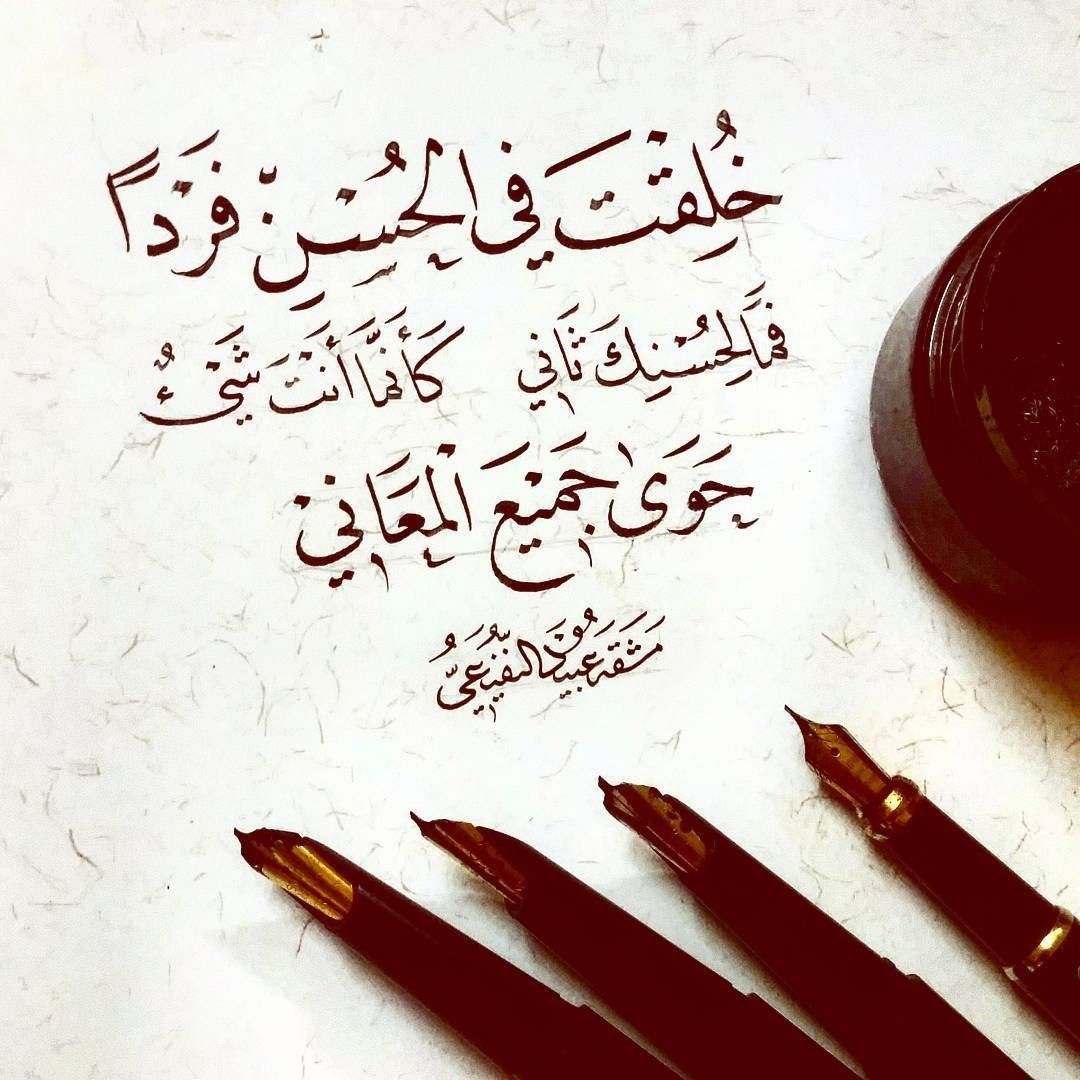 خُلِقْتَ في الحُسْنِ فَرْداً
فَمَا لِحُسْنِكَ ثَاني كَأَنَّمَا أَنْتَ شَيْءٌ
حَوَى جَمِيْعَ الْمَعَانِيْ
مَشَقَهُ عَبيد النفيعي